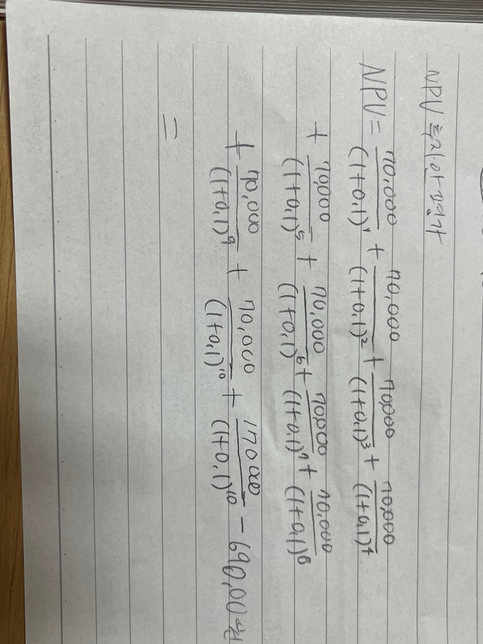 NPV 투자안 평가
NPV = 70,000/(1+0,1)^1 + 70,000/(1+0,1)^2 + 70,000/(1+0,1)^3 + 70,000/(1+0,1)^4
+ 70,000/(1+0,1)^5 + 70,000/(1+0,1)^6 + 70,000/(1+0,1)^7 + 70,000/(1+0,1)^8
+ 70,000/(1+0,1)^9 + 70,000/(1+0,1)^10 + 170000/(1+0,1)^10 - 690,00억원
=